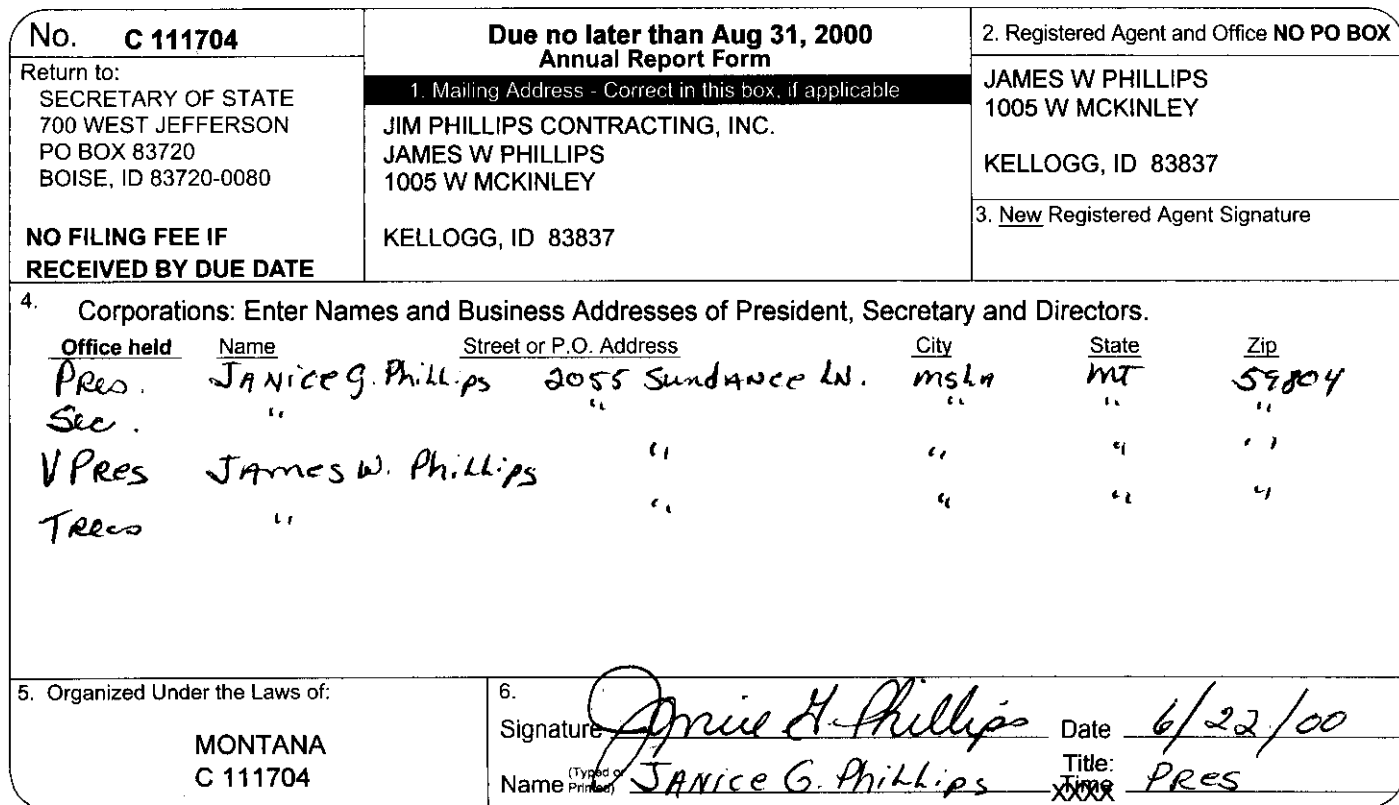 No. C 111704
Return to:
SECRETARY OF STATE
700 WEST JEFFERSON
PO BOX 83720
BOISE, ID 83720-0080
NO FILING FEE IF
RECEIVED BY DUE DATE
Due no later than Aug 31, 2000
Annual Report Form
1. Mailing Address - Correct in this box, if applicable
JIM PHILLIPS CONTRACTING, INC.
JAMES W PHILLIPS
1005 W MCKINLEY
KELLOGG, ID 83837
2. Registered Agent and Office NO PO BOX
JAMES W PHILLIPS
1005 W MCKINLEY
KELLOGG, ID 83837
3. New Registered Agent Signature
4. Corporations: Enter Names and Business Addresses of President, Secretary and Directors.
Office held Name Street or P.O. Address City State Zip
Pres. Janice G. Phillips 2055 Sundance Ln. msln MT 59804
Sec. " " " " "
V Pres James W. Phillips " " " "
Treas " " " " "
5. Organized Under the Laws of:
MONTANA
C 111704
6.
Signature Janice G. Phillips Date 6/22/00
Name (Typed or Printed) Janice G. Phillips Title: Pres